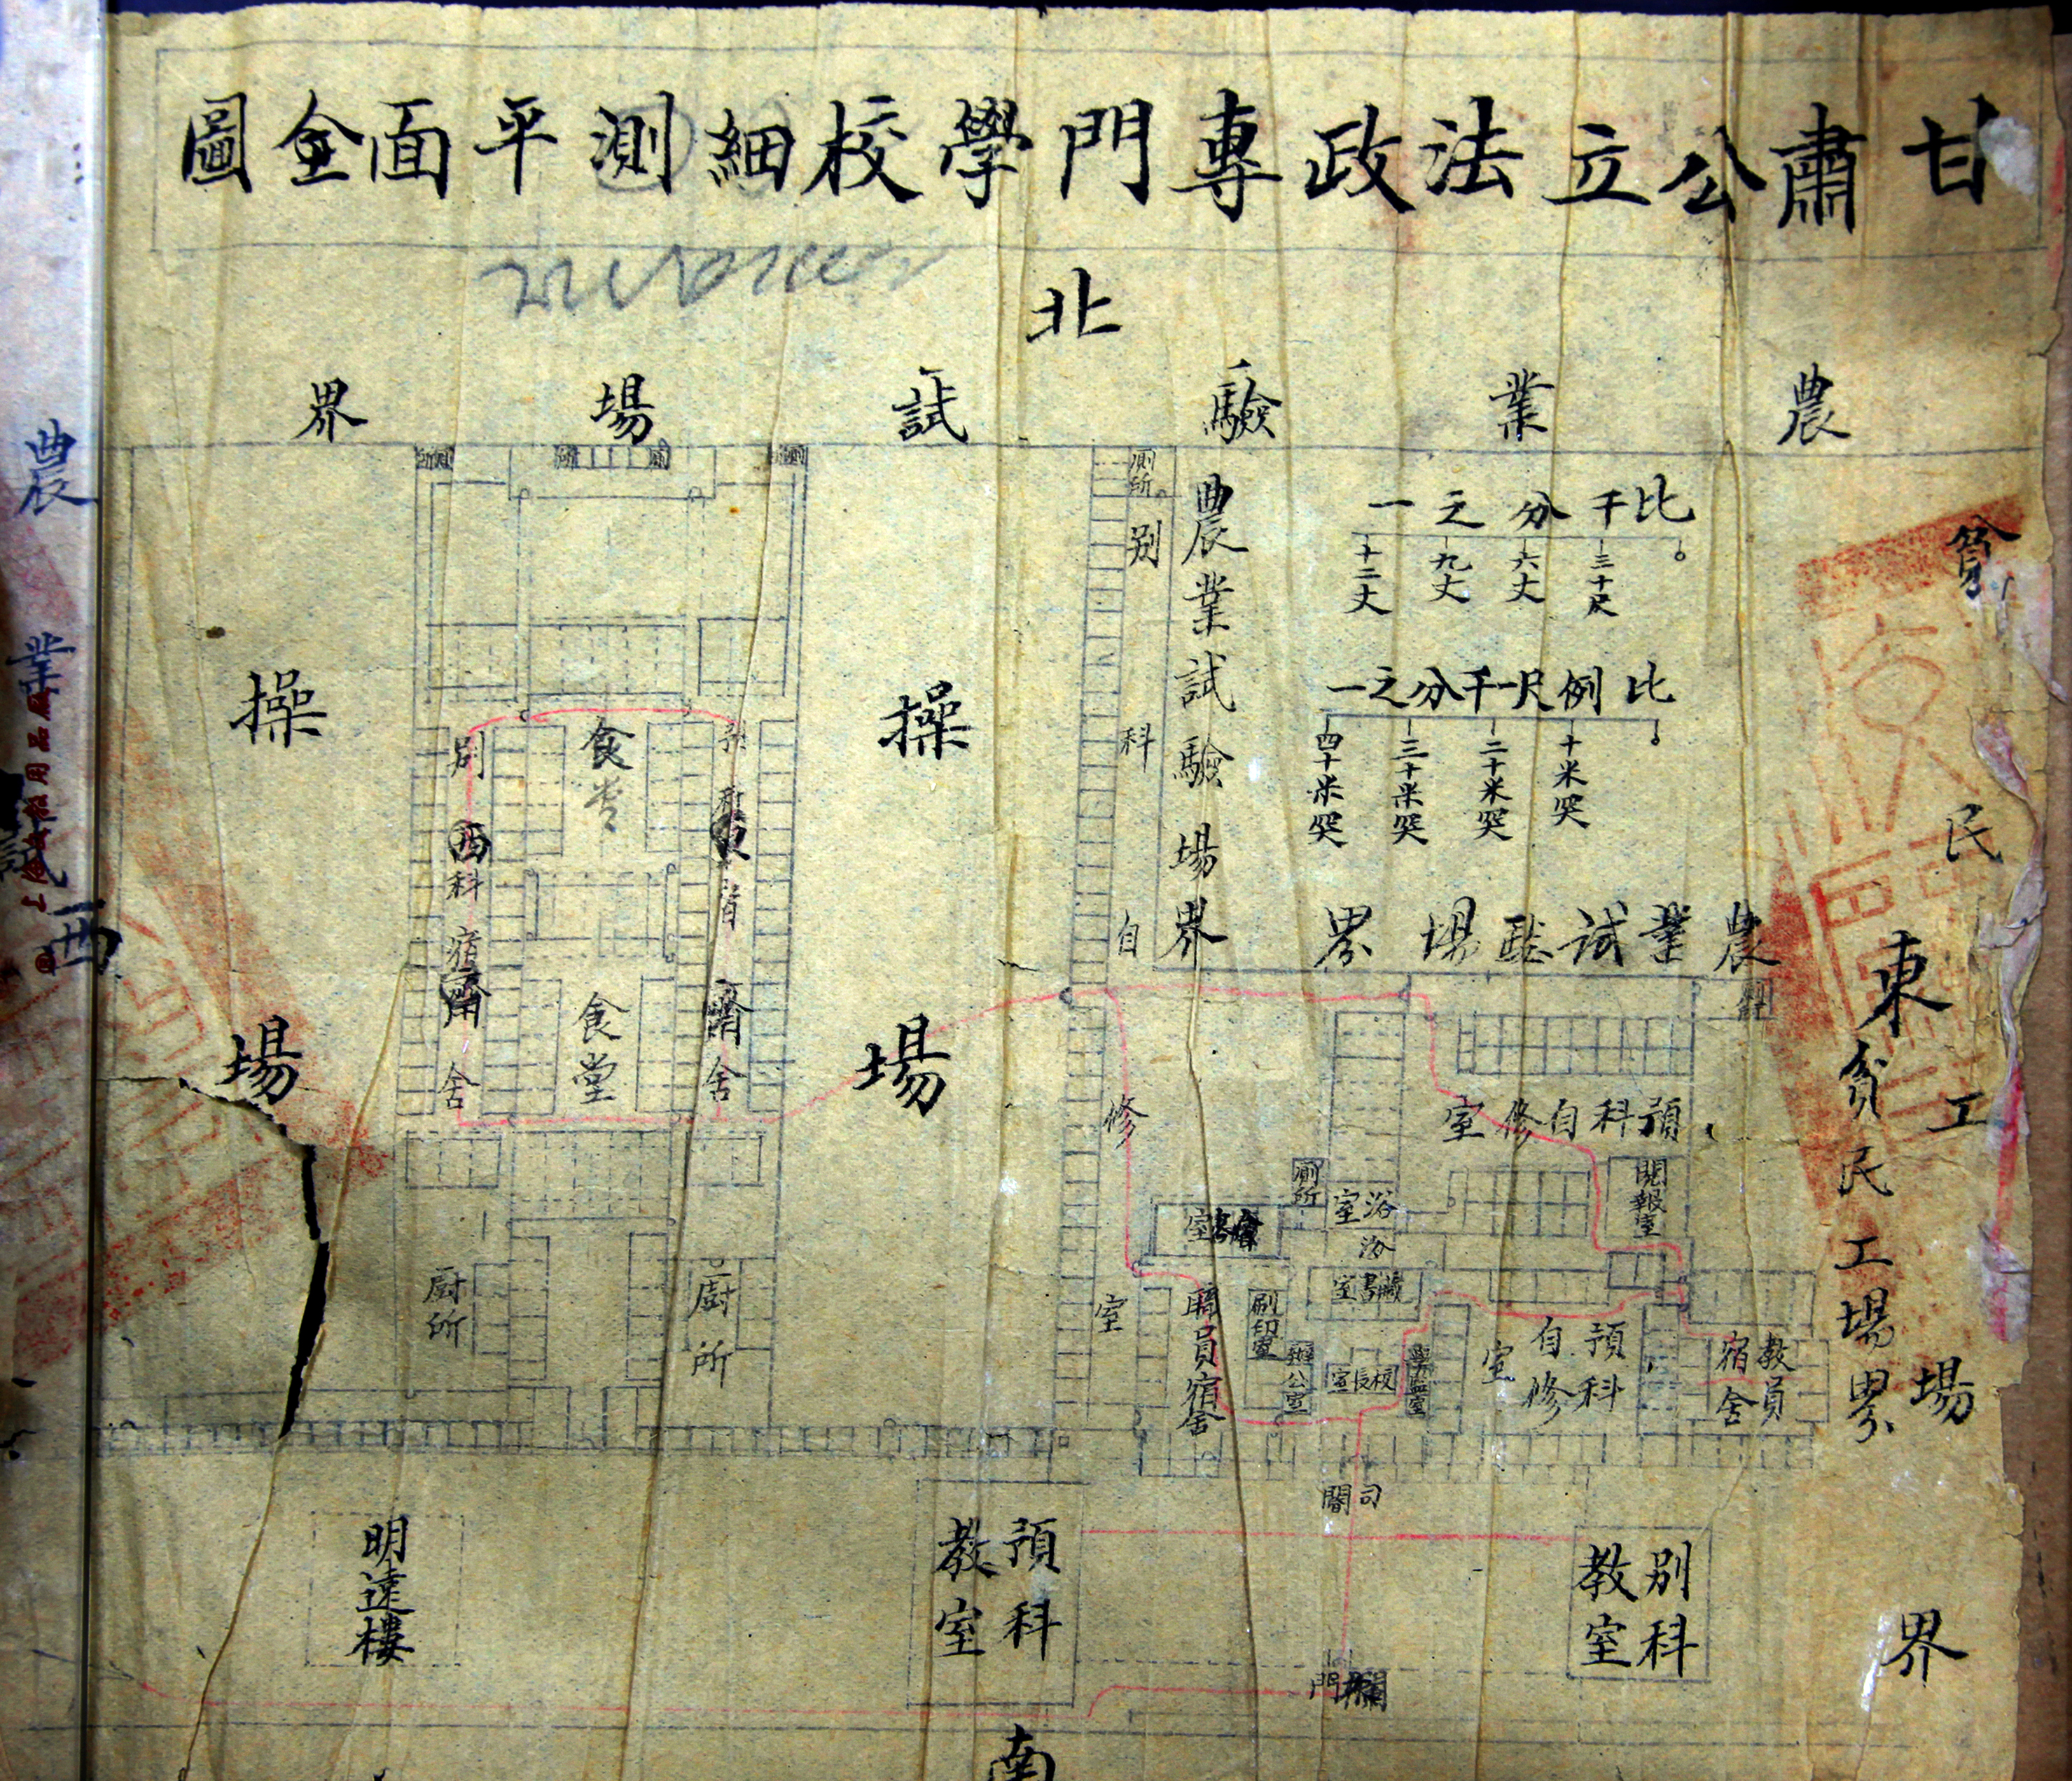 甘肅公立法政專門學校細測平面全圖
北
農業驗試場界
廁所
別科自修室
農業試驗場界
比千分之一
三十尺
六丈
九丈
十二丈
比例尺一千分之一
十米突
二十米突
三十米突
四十米突
農業試驗場界
貧民工場界
東
貧民工場界
操場
操場
食堂
食堂
別
西
科
宿
齋
舍
預
科
東
宿
齋
舍
廚所
廚所
預科自修室
閱報室
廁所
浴室
藏書室
職員宿舍
刷印室
辦公室
校長室
學監室
預科自修室
教員宿舍
司閽
明達樓
預科教室
別科教室
門
南
農
業
試
西